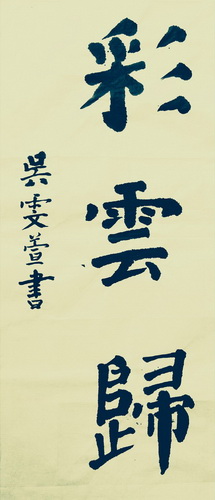 彩雲歸
吳雯萱書